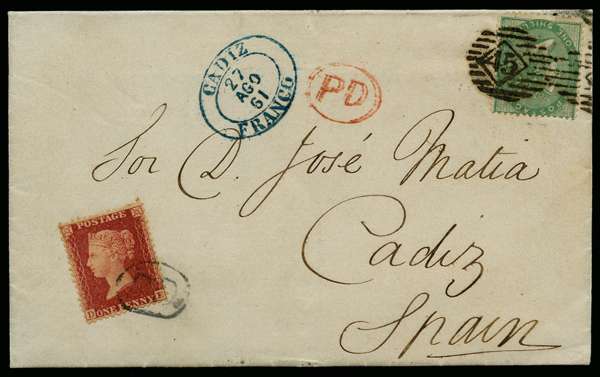 CADIZ
27
AGO
61
FRANCO
PD
ONE SHILLING
15
Sor D. José Matia
Cadiz
Spain
POSTAGE
ONE PENNY